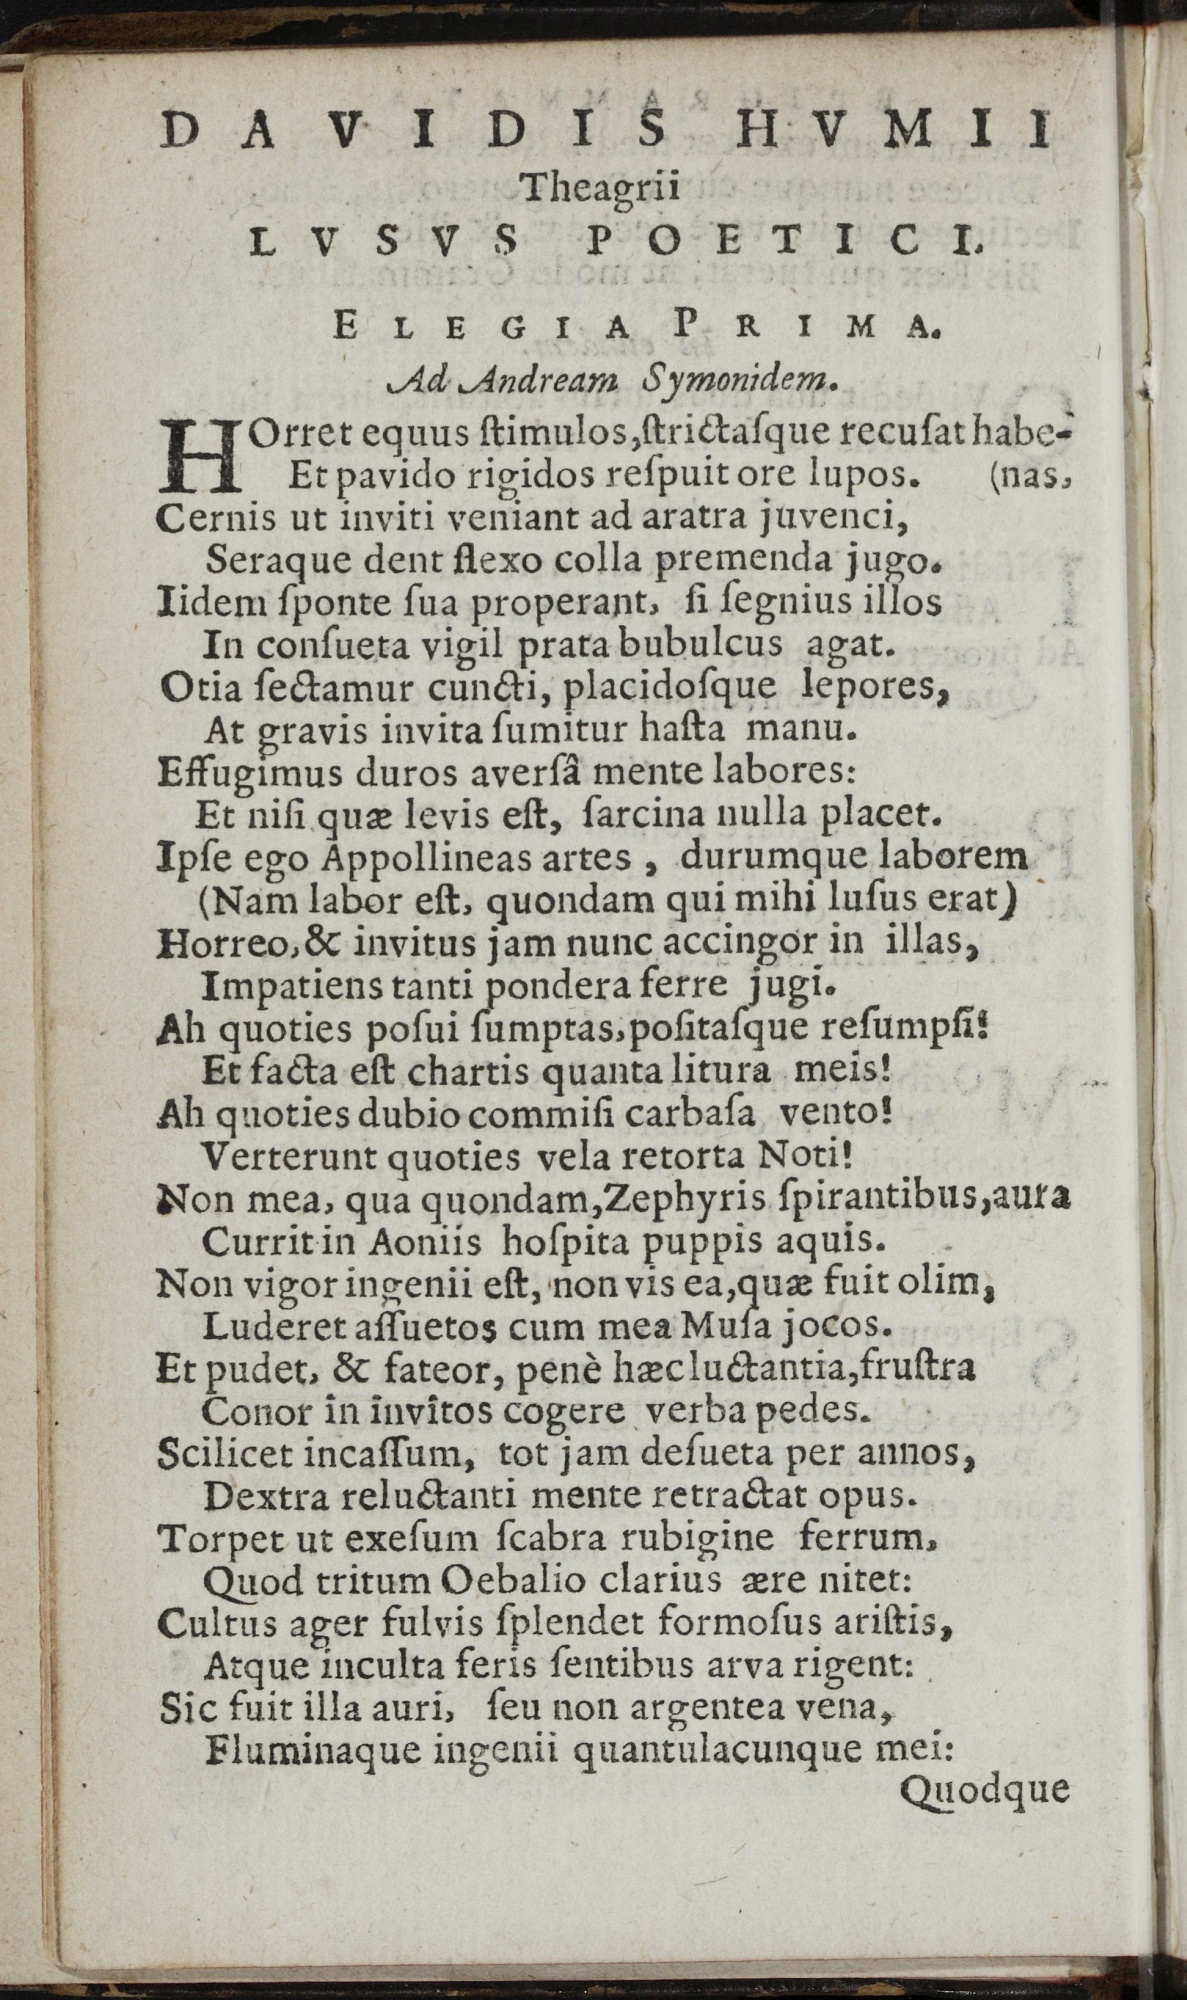 DAVIDIS HVMII
Theagrii
LVSVS POETICI.
ELEGIA PRIMA.
Ad Andream Symonidem.
HOrret equus ſtimulos,ſtrictaſque recuſat habe-
Et pavido rigidos reſpuit ore lupos. (nas,
Cernis ut inviti veniant ad aratra juvenci,
Seraque dent flexo colla premenda jugo.
Iidem ſponte ſua properant, ſi ſegnius illos
In conſueta vigil prata bubulcus agat.
Otia ſectamur cuncti, placidoſque lepores,
At gravis invita ſumitur haſta manu.
Effugimus duros averſâ mente labores:
Et niſi quæ levis eſt, ſarcina nulla placet.
Ipſe ego Appollineas artes, durumque laborem
(Nam labor eſt, quondam qui mihi luſus erat)
Horreo,& invitus jam nunc accingor in illas,
Impatiens tanti pondera ferre jugi.
Ah quoties poſui ſumptas,poſitaſque reſumpſi!
Et facta eſt chartis quanta litura meis!
Ah quoties dubio commiſi carbaſa vento!
Verterunt quoties vela retorta Noti!
Non mea, qua quondam,Zephyris ſpirantibus,aura
Currit in Aoniis hoſpita puppis aquis.
Non vigor ingenii eſt, non vis ea,quæ fuit olim,
Luderet aſſuetos cum mea Muſa jocos.
Et pudet, & fateor, penè hæc luctantia,fruſtra
Conor in invîtos cogere verba pedes.
Scilicet incaſſum, tot jam deſueta per annos,
Dextra reluctanti mente retractat opus.
Torpet ut exeſum ſcabra rubigine ferrum,
Quod tritum Oebalio clarius ære nitet:
Cultus ager fulvis ſplendet formoſus ariſtis,
Atque inculta feris ſentibus arva rigent:
Sic fuit illa auri, ſeu non argentea vena,
Fluminaque ingenii quantulacunque mei:
Quodque